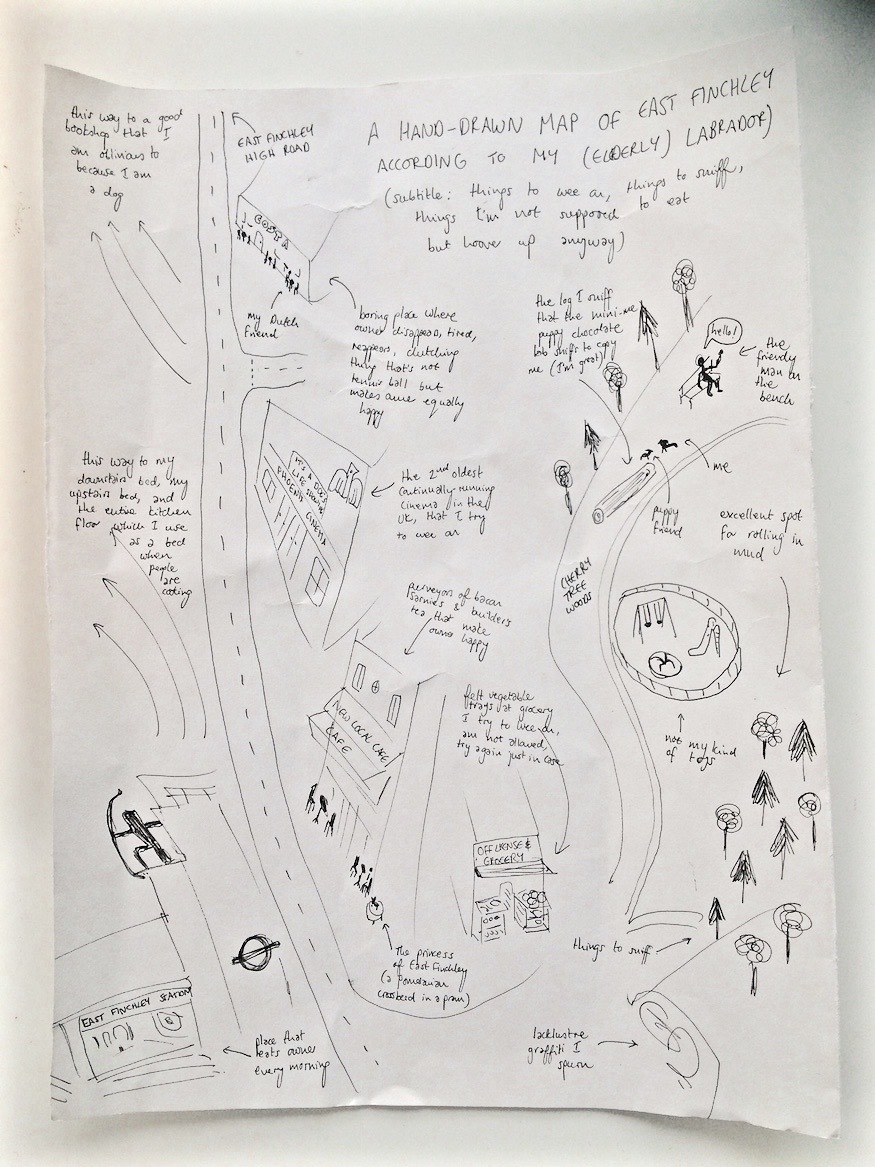 A HAND-DRAWN MAP OF EAST FINCHLEY
ACCORDING TO MY (ELDERLY) LABRADOR)
(subtitle: things to wee on, things to sniff,
things I'm not supposed to eat
but hoover up anyway)
this way to a good
bookshop that I
am oblivious to
because I am
a dog
EAST FINCHLEY
HIGH ROAD
COSTA
my Dutch
friend
boring place where
owner disappears, tired,
reappears, clutching
thing that's not
tennis ball but
makes owner equally
happy
the log I sniff
that the mini-me
puppy chocolate
lab sniffs to copy
me (I'm great)
hello!
the
friendly
man on
the
bench
me
puppy
friend
excellent spot
for rolling in
mud
this way to my
downstairs bed, my
upstairs bed, and
the entire kitchen
floor which I use
as a bed
when
people
are
cooking
IT'S A DOG'S
LIFE SHOWING
PHOENIX CINEMA
the 2nd oldest
continually-running
cinema in the
UK, that I try
to wee on
CHERRY
TREE
WOODS
purveyors of bacon
sarnies & builders
tea that make
owner happy
NEW LOCAL CAFE
CAFE
felt vegetable
trays at grocery
I try to wee on,
am not allowed,
try again just in case
not my kind
of toys
OFF LICENSE &
GROCERY
The princess
of East Finchley
(a pomeranian
crossbreed in a pram)
things to sniff
EAST FINCHLEY STATION
place that
eats owner
every morning
lacklustre
graffiti I
spurn